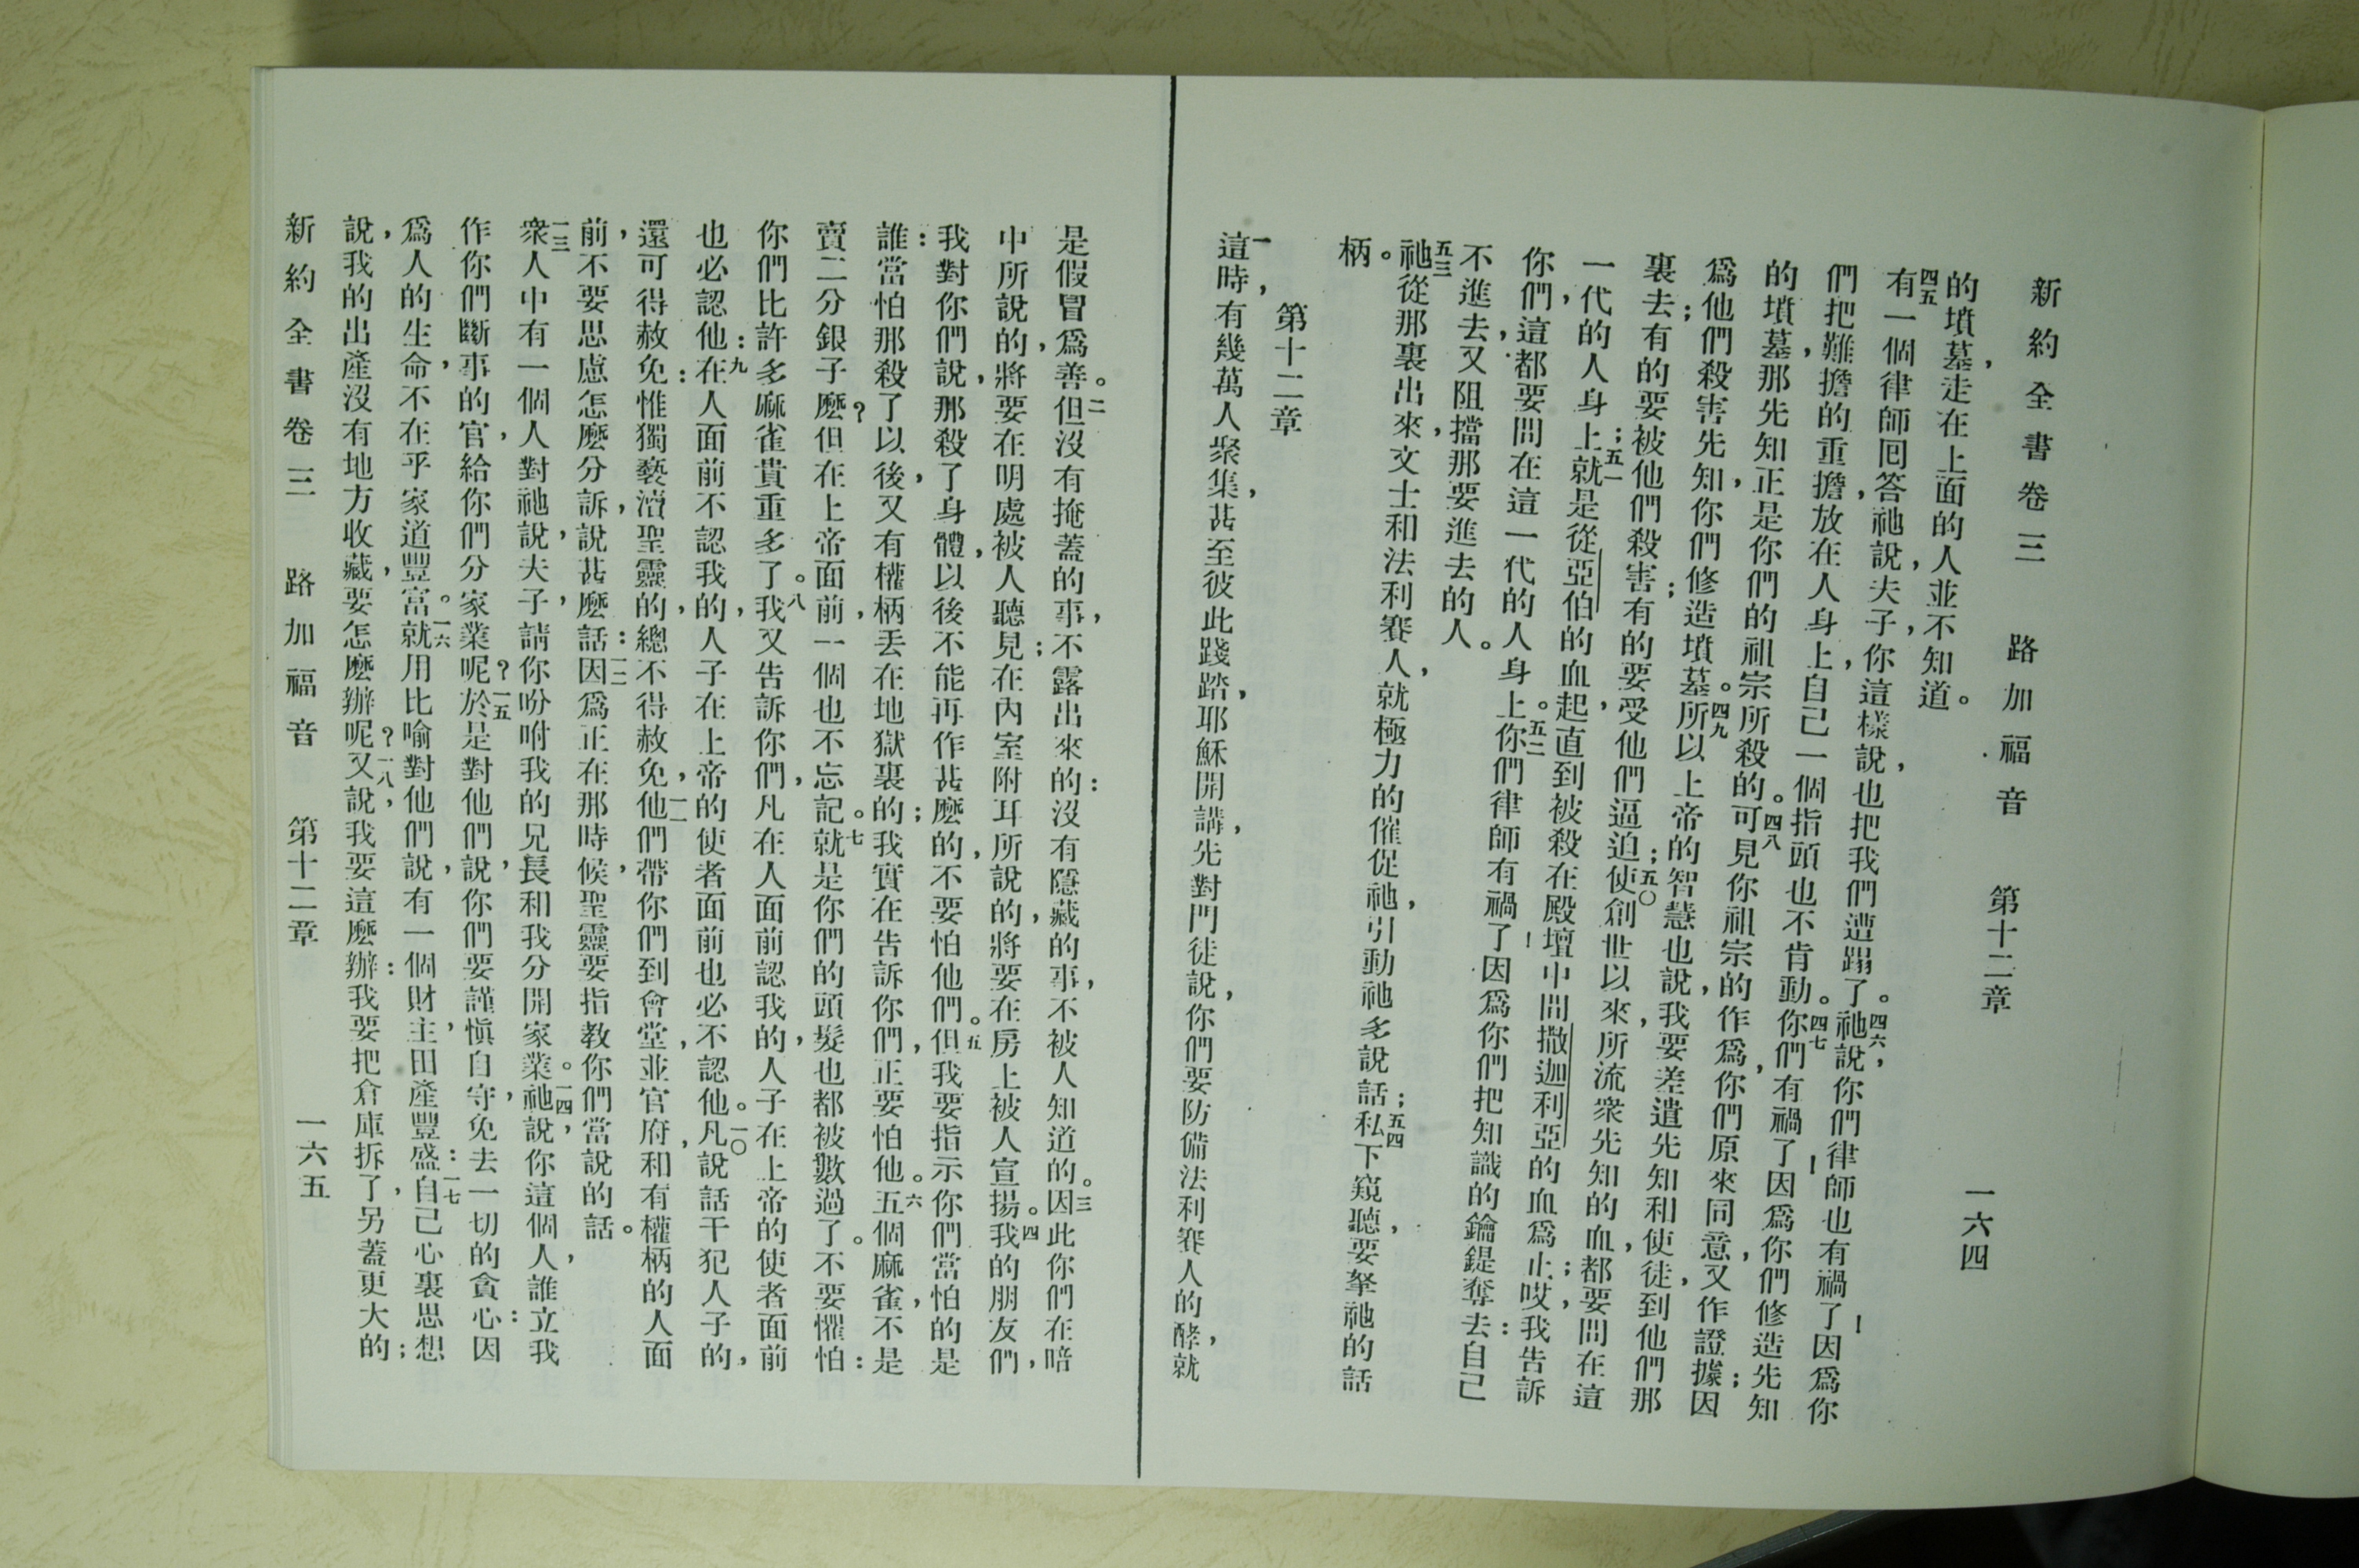 新約全書卷三　路加福音　第十二章　一六四
的墳墓，走在上面的人並不知道。
四五有一個律師回答祂說，夫子，你這樣說，也把我們遭蹋了。四六祂說，你們律師也有禍了！因爲你
們把難擔的重擔，放在人身上，自己一個指頭也不肯動。四七你們有禍了！因爲你們修造先知
的墳墓，那先知正是你們的祖宗所殺的。四八可見你祖宗的作爲，你們原來同意，又作證據；因
爲他們殺害先知，你們修造墳墓。四九所以上帝的智慧也說，我要差遣先知和使徒，到他們那
裏去；有的要被他們殺害；有的要受他們逼迫；五〇使創世以來，所流衆先知的血，都要問在這
一代的人身上；五一就是從亞伯的血起，直到被殺在殿壇中間撒迦利亞的血爲止；哎，我告訴
你們，這都要問在這一代的人身上。五二你們律師有禍了！因爲你們把知識的鑰鍉奪去：自己
不進去，又阻擋那要進去的人。
五三祂從那裏出來，文士和法利賽人，就極力的催促祂，引動祂多說話；五四私下窺聽，要拏祂的話
柄。
第十二章
一這時，有幾萬人聚集，甚至彼此踐踏，耶穌開講，先對門徒說，你們要防備法利賽人的酵，就
是假冒爲善。二但沒有掩蓋的事，不露出來的：沒有隱藏的事，不被人知道的。三因此你們在暗
中所說的，將要在明處被人聽見；在內室附耳所說的，將要在房上被人宣揚。四我的朋友們，
我對你們說，那殺了身體，以後不能再作甚麼的，不要怕他們。五但我要指示你們當怕的是
誰：當怕那殺了以後，又有權柄丟在地獄裏的；我實在告訴你們，正要怕他。六五個麻雀，不是
賣二分銀子麼？但在上帝面前，一個也不忘記。七就是你們的頭髮，也都被數過了。不要懼怕：
你們比許多麻雀貴重多了。八我又告訴你們，凡在人面前認我的，人子在上帝的使者面前
也必認他：九在人面前不認我的，人子在上帝的使者面前也必不認他。一〇凡說話干犯人子的，
還可得赦免：惟獨褻瀆聖靈的，總不得赦免，一一他們帶你們到會堂，並官府，和有權柄的人面
前，不要思慮怎麼分訴，說甚麼話：一二因爲正在那時候，聖靈要指教你們當說的話。
一三衆人中有一個人對祂說，夫子，請你吩咐我的兄長和我分開家業。一四祂說，你這個人，誰立我
作你們斷事的官，給你們分家業呢？一五於是對他們說，你們要謹愼自守，免去一切的貪心：因
爲人的生命，不在乎家道豐富。一六就用比喻對他們說，有一個財主，田產豐盛：一七自己心裏思想
說，我的出產沒有地方收藏，要怎麼辦呢？一八又說，我要這麼辦：我要把倉庫拆了，另蓋更大的；
新約全書卷三　路加福音　第十二章　一六五